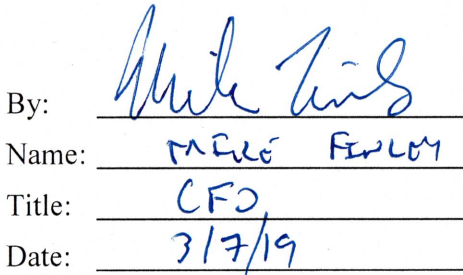 By: Mike Finley
Name: MIKE FINLEY
Title: CFO
Date: 3/7/19